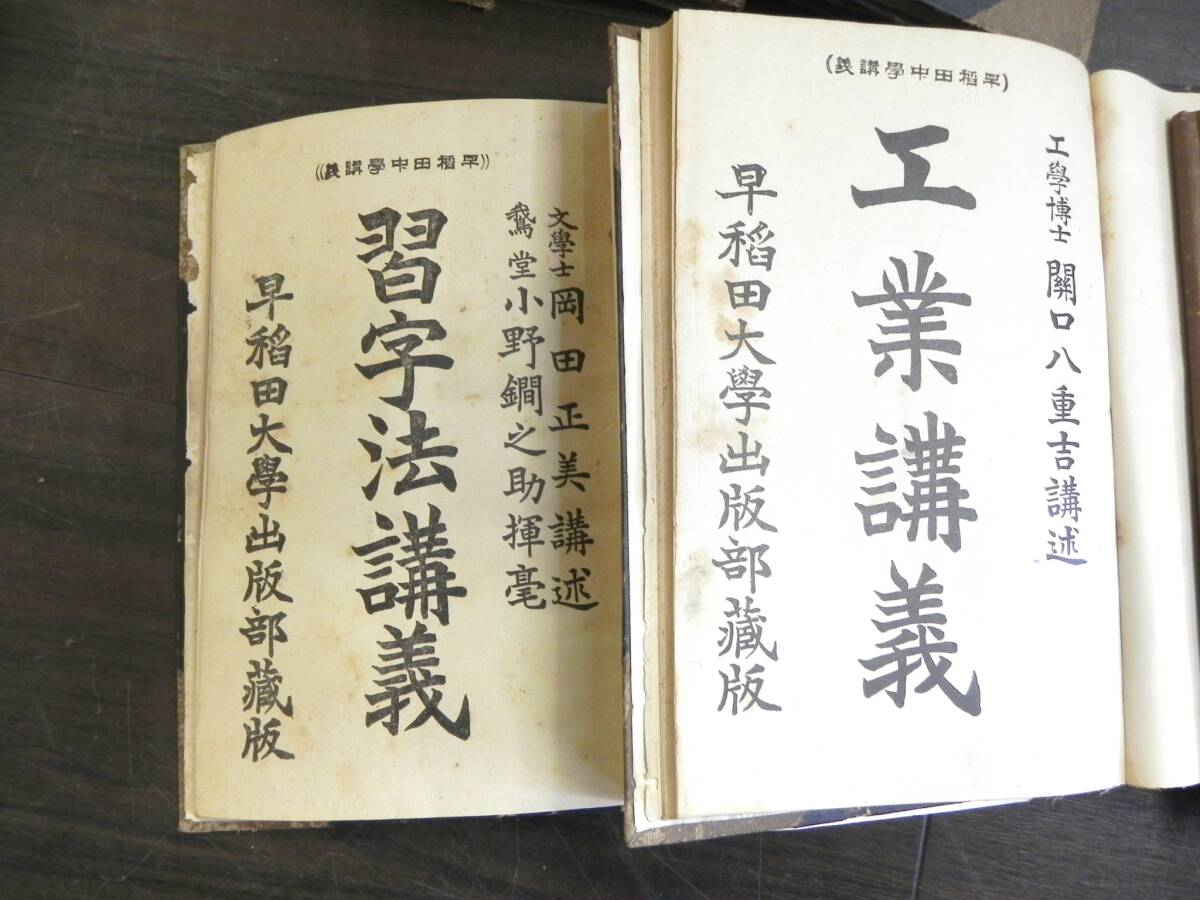 (早稻田中學講義)
工學博士 關口八重吉講述
工業講義
早稻田大學出版部藏版
((早稻田中學講義))
文學士 岡田正美講述
鵞堂 小野鐗之助揮毫
習字法講義
早稻田大學出版部藏版